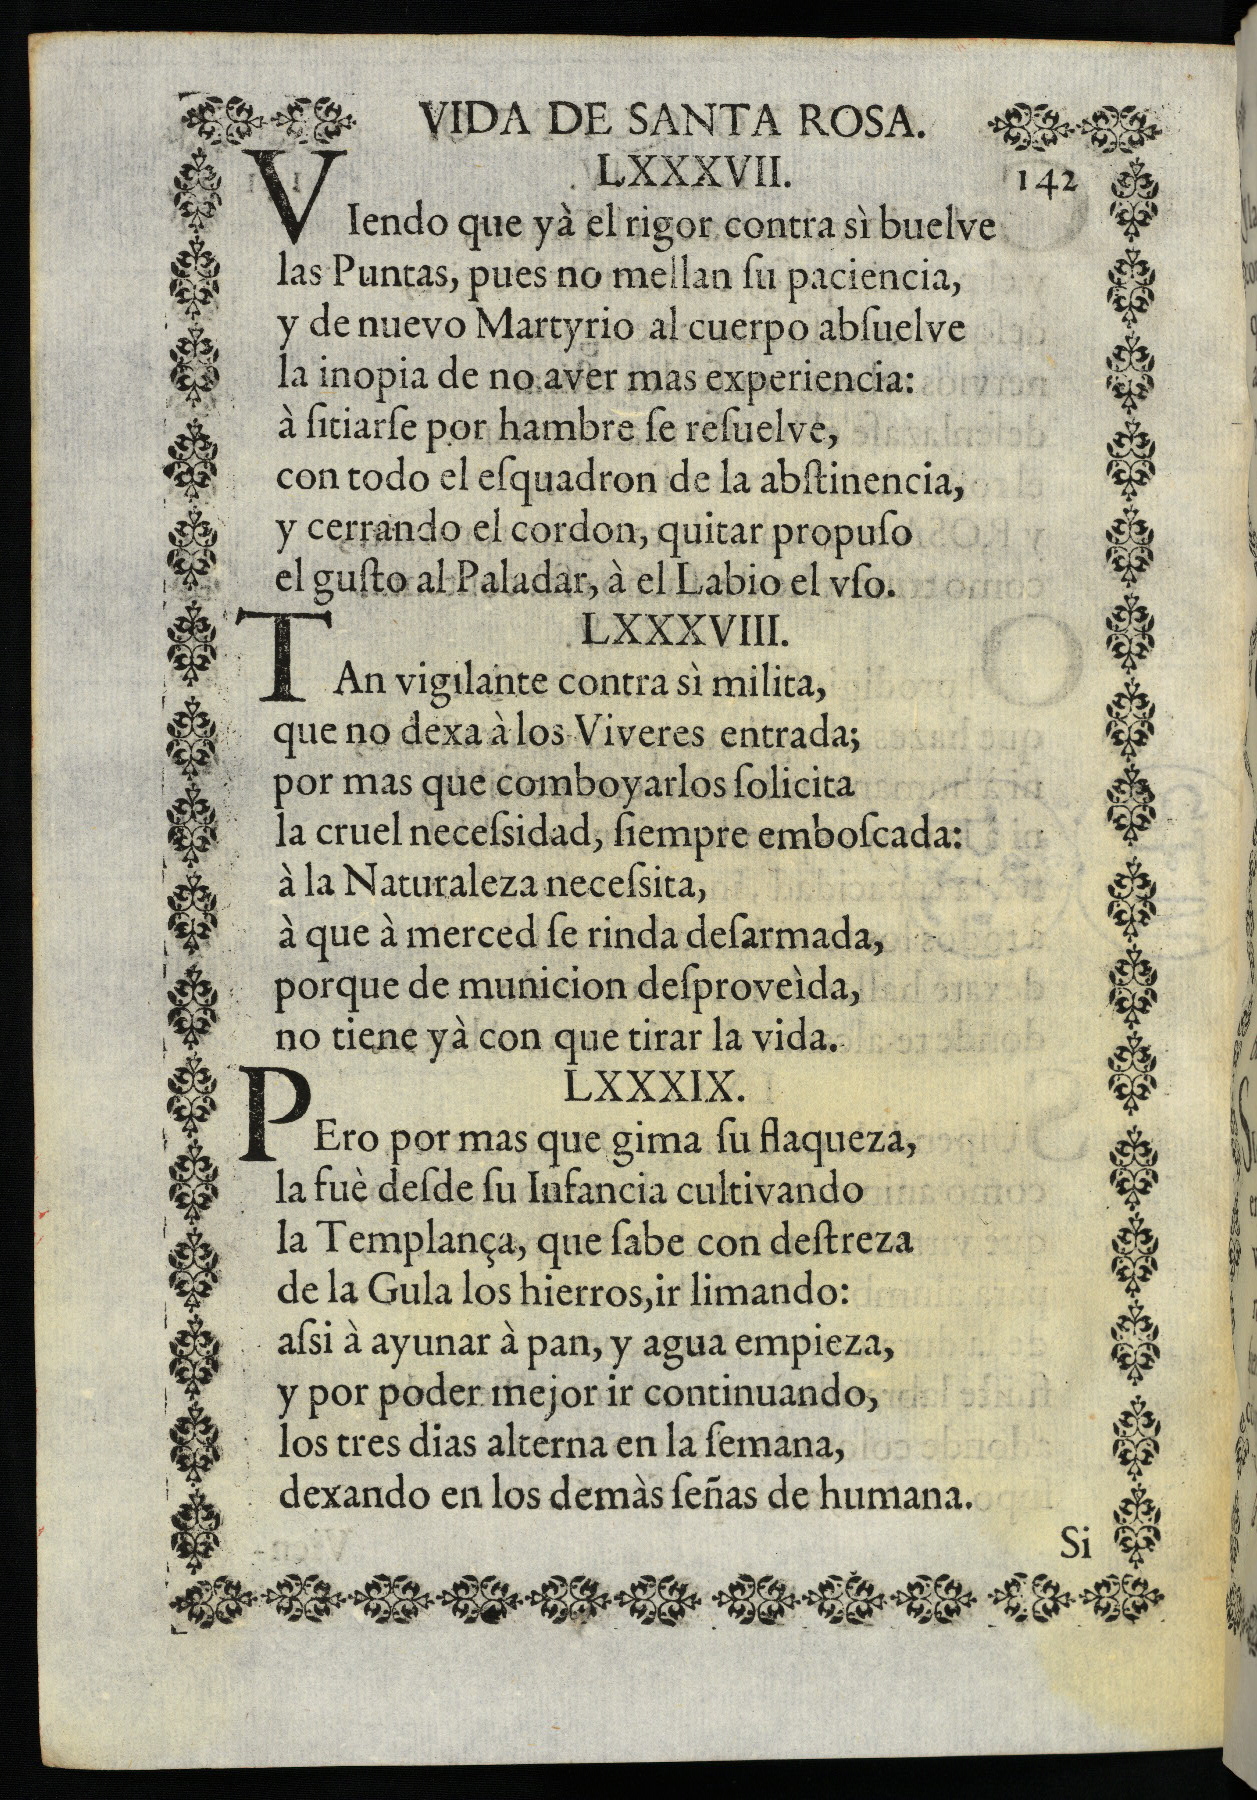 VIDA DE SANTA ROSA.
LXXXVII.
142
VIendo que yà el rigor contra sì buelve
las Puntas, pues no mellan ſu paciencia,
y de nuevo Martyrio al cuerpo abſuelve
la inopia de no aver mas experiencia:
à ſitiarſe por hambre ſe reſuelve,
con todo el eſquadron de la abſtinencia,
y cerrando el cordon, quitar propuſo
el guſto al Paladar, à el Labio el vſo.
LXXXVIII.
TAn vigilante contra sì milita,
que no dexa à los Viveres entrada;
por mas que comboyarlos ſolicita
la cruel neceſsidad, ſiempre emboſcada:
à la Naturaleza neceſsita,
à que à merced ſe rinda deſarmada,
porque de municion deſproveìda,
no tiene yà con que tirar la vida.
LXXXIX.
PEro por mas que gima ſu flaqueza,
la fuè deſde ſu Infancia cultivando
la Templança, que ſabe con deſtreza
de la Gula los hierros, ir limando:
aſsi à ayunar à pan, y agua empieza,
y por poder mejor ir continuando,
los tres dias alterna en la ſemana,
dexando en los demàs ſeñas de humana.
Si